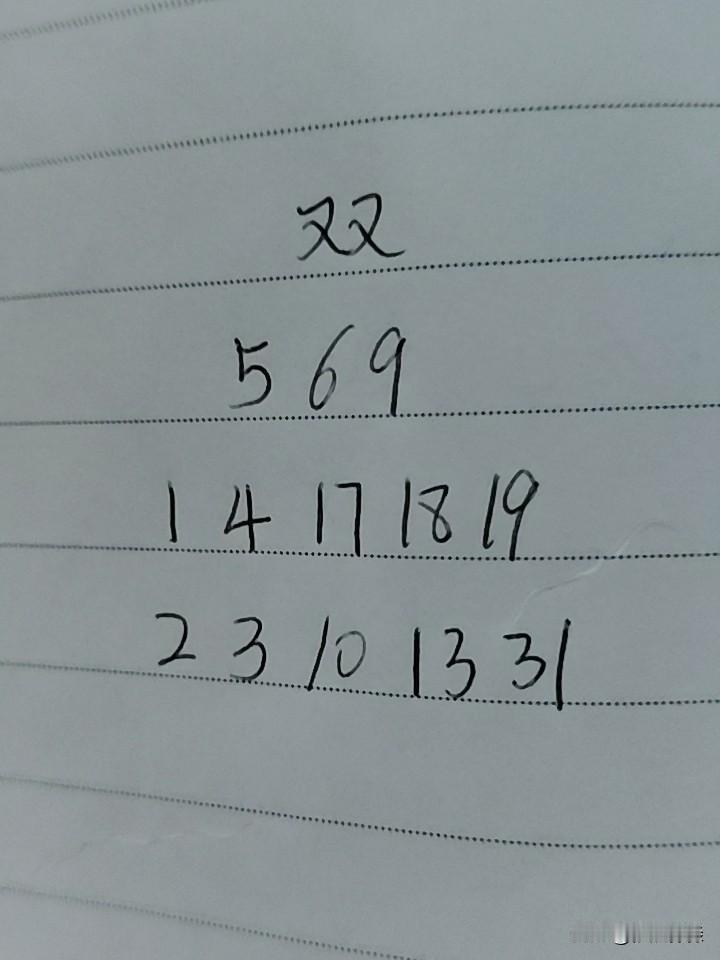 双
5 6 9
1 4 17 18 19
2 3 10 13 31